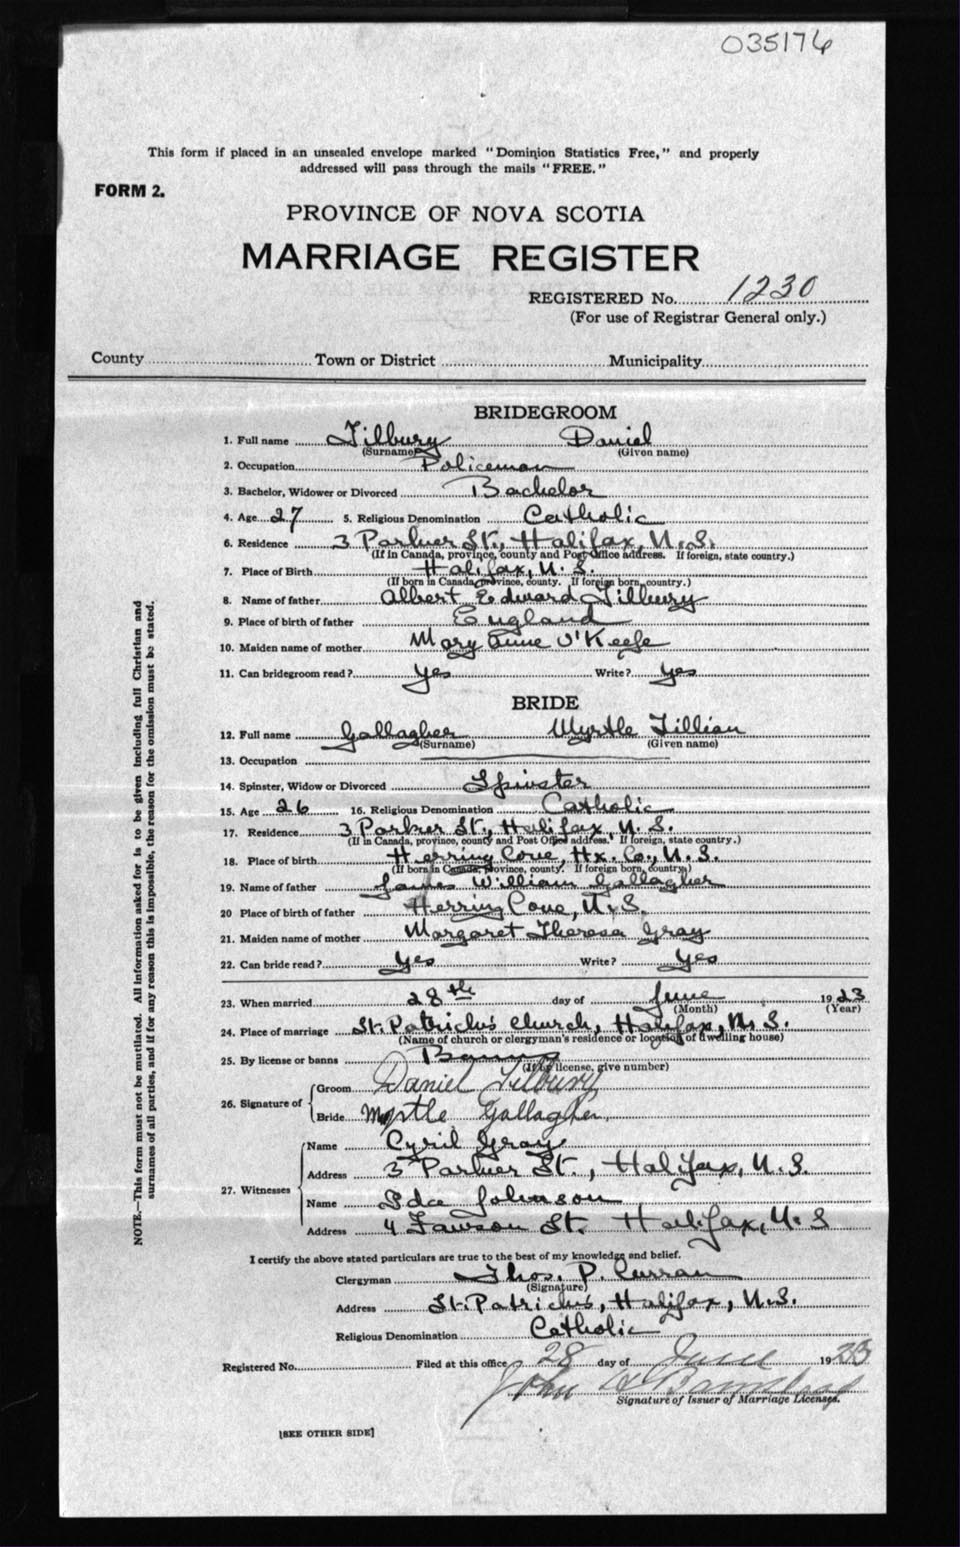 035176
This form if placed in an unsealed envelope marked "Dominion Statistics Free," and properly
addressed will pass through the mails "FREE."
FORM 2.
PROVINCE OF NOVA SCOTIA
MARRIAGE REGISTER
REGISTERED No. 1230
(For use of Registrar General only.)
County Town or District Municipality
BRIDEGROOM
1. Full name Tilbury Daniel
(Surname) (Given name)
2. Occupation Policeman
3. Bachelor, Widower or Divorced Bachelor
4. Age 27 5. Religious Denomination Catholic
6. Residence 3 Parker St., Halifax, N.S.
(If in Canada, province, county and Post Office address. If foreign, state country.)
7. Place of Birth Halifax, N.S.
(If born in Canada, province, county. If foreign born, country.)
8. Name of father Albert Edward Tilbury
9. Place of birth of father England
10. Maiden name of mother Mary Anne O'Keefe
11. Can bridegroom read? yes Write? yes
BRIDE
12. Full name Gallagher Myrtle Lillian
(Surname) (Given name)
13. Occupation
14. Spinster, Widow or Divorced Spinster
15. Age 26 16. Religious Denomination Catholic
17. Residence 3 Parker St., Halifax, N.S.
(If in Canada, province, county and Post Office address. If foreign, state country.)
18. Place of birth Herring Cove, Hx. Co., N.S.
(If born in Canada, province, county. If foreign born, country.)
19. Name of father James William Gallagher
20 Place of birth of father Herring Cove, N.S.
21. Maiden name of mother Margaret Theresa Gray
22. Can bride read? yes Write? yes
23. When married 28th day of June 1923
(Month) (Year)
24. Place of marriage St. Patrick's Church, Halifax, N.S.
(Name of church or clergyman's residence or location of dwelling house)
25. By license or banns Banns
(If by license, give number)
26. Signature of
Groom Daniel Tilbury
Bride Myrtle Gallagher
27. Witnesses
Name Cyril Gray
Address 3 Parker St., Halifax, N.S.
Name Ida Johnson
Address 4 Lawson St. Halifax, N.S
I certify the above stated particulars are true to the best of my knowledge and belief.
Clergyman Thos. P. Curran
(Signature)
Address St. Patrick's, Halifax, N.S.
Religious Denomination Catholic
Registered No. Filed at this office 28 day of June 19
John
Signature of Issuer of Marriage Licenses.
[SEE OTHER SIDE]
NOTE.—This form must not be mutilated. All information asked for is to be given including full Christian and
surnames of all parties, and if for any reason this is impossible, the reason for the omission must be stated.